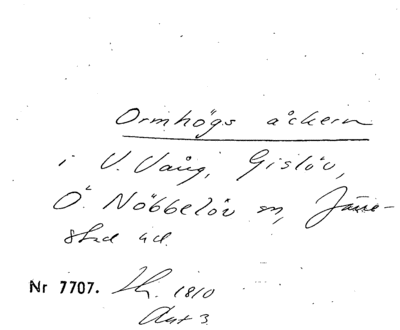 Ormhögs åckern
i V. Vång, Gislöv,
Ö. Nöbbelöv sn, Järre-
stad hd.
Nr 7707. Lh. 1810
Akt 3